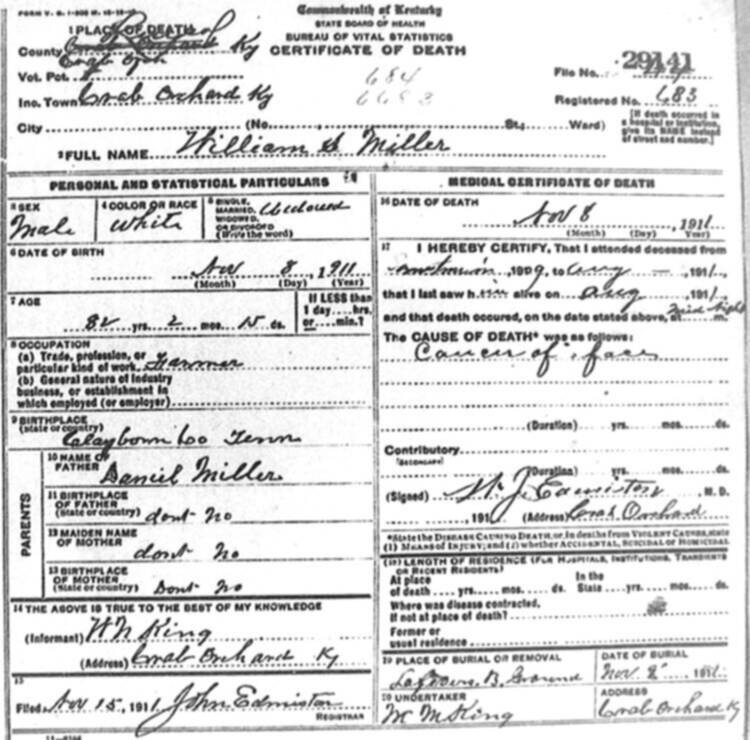 FORM V. S. 1-
Commonwealth of Kentucky
STATE BOARD OF HEALTH
BUREAU OF VITAL STATISTICS
CERTIFICATE OF DEATH
1 PLACE OF DEATH
County Crab Orchard Ky
Vot. Pct. Crab Orch
Inc. Town Crab Orchard Ky
684
6683
File No. 29141
Registered No. 683
City (No. St.; Ward)
[If death occurred in a hospital or institution, give its NAME instead of street and number.]
2 FULL NAME William S Miller
PERSONAL AND STATISTICAL PARTICULARS
3 SEX
Male
4 COLOR OR RACE
White
5 SINGLE, MARRIED, WIDOWED, OR DIVORCED (Write the word)
6 DATE OF BIRTH
Nov 8 1911
(Month) (Day) (Year)
7 AGE
82 yrs. 2 mos. 15 ds.
If LESS than 1 day hrs. or min.?
8 OCCUPATION
(a) Trade, profession, or particular kind of work Farmer
(b) General nature of industry business, or establishment in which employed (or employer)
9 BIRTHPLACE (State or country)
Clayborn Co Tenn
PARENTS
10 NAME OF FATHER Daniel Miller
11 BIRTHPLACE OF FATHER (State or country) dont No
12 MAIDEN NAME OF MOTHER dont No
13 BIRTHPLACE OF MOTHER (State or country) Dont No
14 THE ABOVE IS TRUE TO THE BEST OF MY KNOWLEDGE
(Informant) W N King
(Address) Crab Orchard Ky
15
Filed Nov 15, 1911 John Edmiston
REGISTRAR
MEDICAL CERTIFICATE OF DEATH
16 DATE OF DEATH
Nov 8, 1911
(Month) (Day) (Year)
17 I HEREBY CERTIFY, That I attended deceased from
1909, to Aug, 1911,
that I last saw him alive on Aug, 1911,
and that death occured, on the date stated above, at Mid night m.
The CAUSE OF DEATH* was as follows:
Cancer of face
(Duration) yrs. mos. ds.
Contributory
(SECONDARY)
(Duration) yrs. mos. ds.
(Signed) W. J. Edmiston, M. D.
, 191 (Address) Crab Orchard
*State the DISEASE CAUSING DEATH, or, in deaths from VIOLENT CAUSES, state (1) MEANS OF INJURY; and (2) whether ACCIDENTAL, SUICIDAL OR HOMICIDAL
18 LENGTH OF RESIDENCE (FOR HOSPITALS, INSTITUTIONS, TRANSIENTS OR RECENT RESIDENTS)
At place of death yrs. mos. ds. In the State yrs. mos. ds.
Where was disease contracted, if not at place of death?
Former or usual residence
19 PLACE OF BURIAL OR REMOVAL
B. Ground
DATE OF BURIAL
Nov. 1911
20 UNDERTAKER
W M King
ADDRESS
Crab Orchard Ky